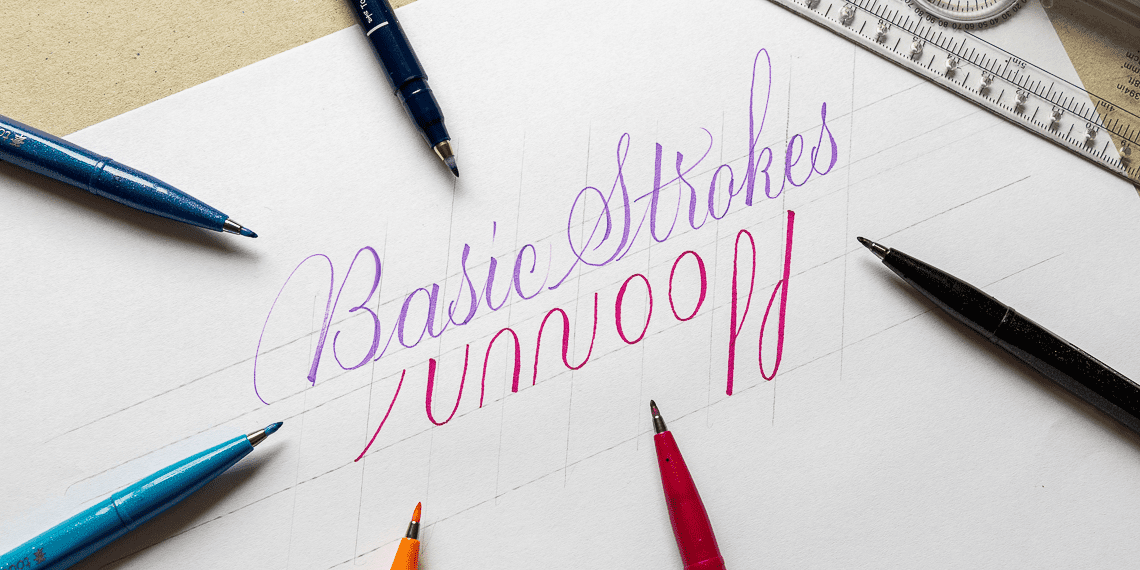 Basic Strokes